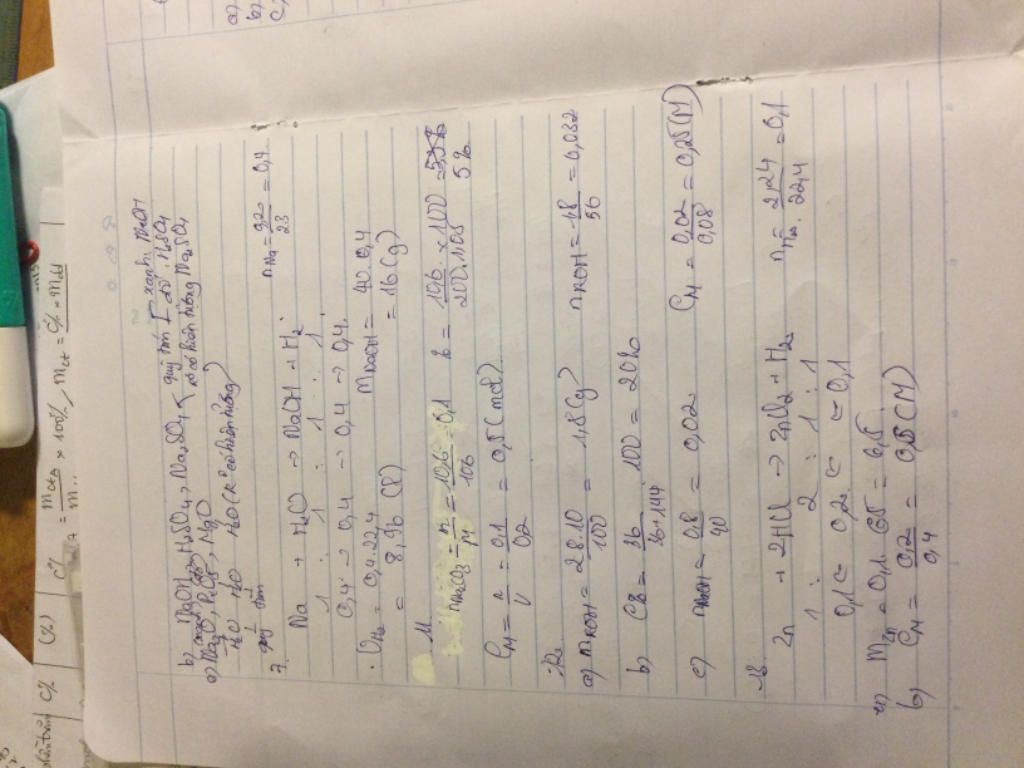 C% = mct × 100%, mct = C% × mdd
b) NaOH, H2SO4, Na2SO4 < quỳ tím [ xanh: NaOH
đỏ: H2SO4
ko có hiện tượng Na2SO4
c) Na2O, P2O5, MgO
H2O H2O H2O (ko có hiện tượng)
quỳ tím
7. nNa = 9,20/23 = 0,4
Na + H2O → NaOH + H2
1 : 1 : 1 : 1
0,4 → 0,4 → 0,4 → 0,4
VH2 = 0,4.22,4 mNaOH = 40.0,4
= 8,96 (l) = 16 (g)
11
nNa2CO3 = m/M = 10,6/106 = 0,1 b = 10,6/200.1,05 × 100 = 5%
CM = n/V = 0,1/0,2 = 0,5 (mol)
12.
a) mKOH = 28.10/100 = 1,8 (g) nKOH = 1,8/56 = 0,032
b) C% = 36/36+144 100 = 20%
c) nNaOH = 0,8/40 = 0,02 CM = 0,02/0,08 = 0,25 (M)
18.
Zn + 2HCl → ZnCl2 + H2 nH2 = 2,24/22,4 = 0,1
1 : 2 : 1 : 1
0,1 ← 0,2 ← ← 0,1
a) mZn = 0,1.65 = 6,5
b) CM = 0,2/0,4 = 0,5 (M)